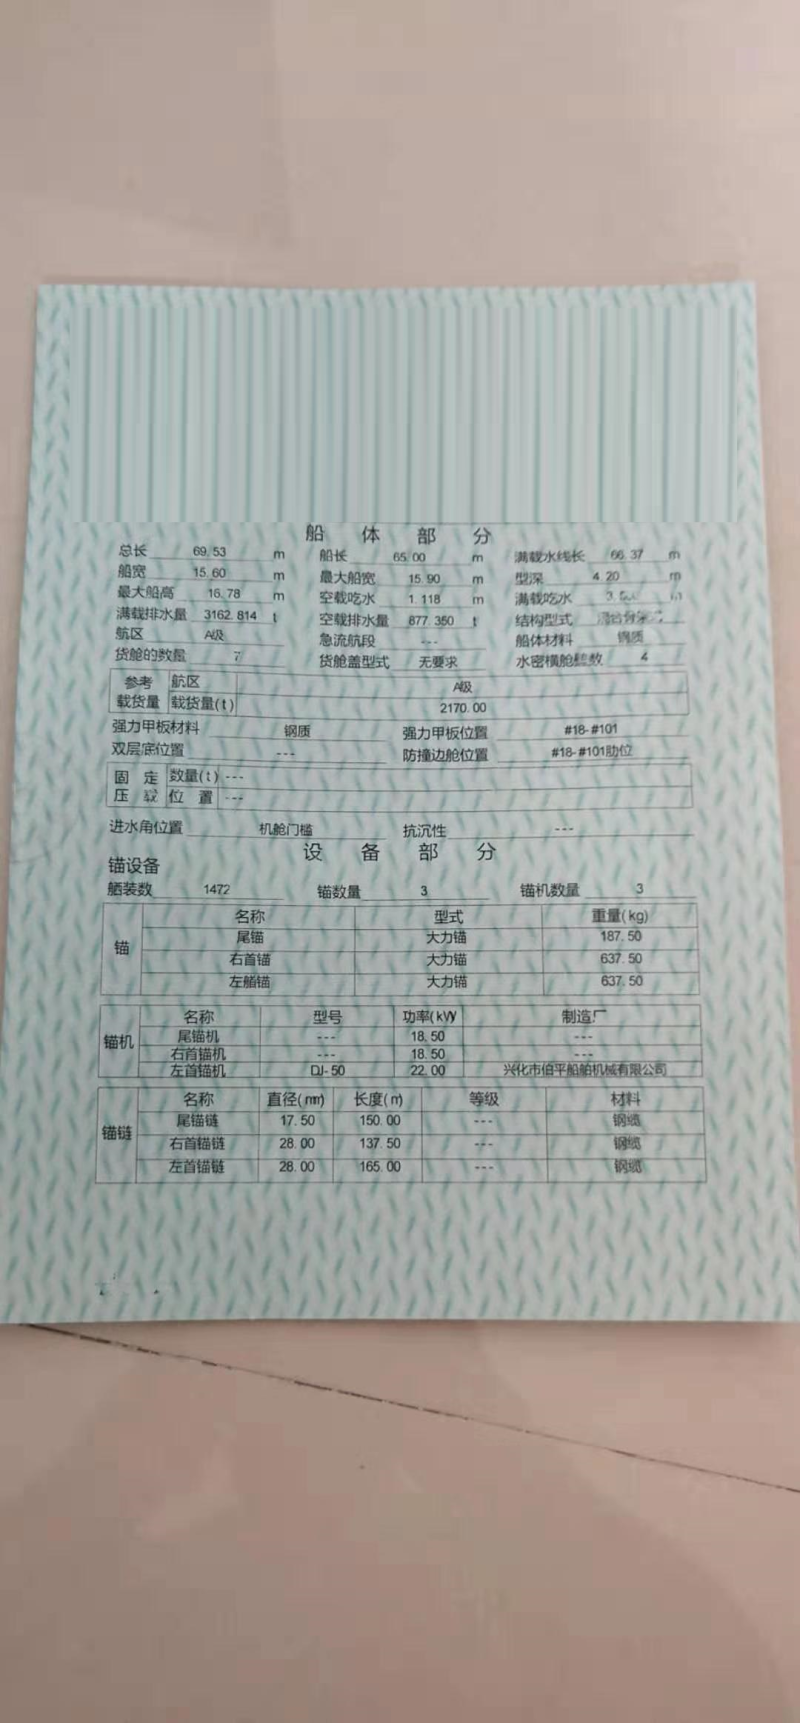 船 体 部 分
总长 69.53 m 船长 65.00 m 满载水线长 66.37 m
船宽 15.60 m 最大船宽 15.90 m 型深 4.20 m
最大船高 16.78 m 空载吃水 1.118 m 满载吃水 m
满载排水量 3162.814 t 空载排水量 877.350 t 结构型式
航区 A级 急流航段 --- 船体材料 钢质
货舱的数量 7 货舱盖型式 无要求 水密横舱壁数 4
参考 航区 A级
载货量 载货量(t) 2170.00
强力甲板材料 钢质 强力甲板位置 #18-#101
双层底位置 --- 防撞边舱位置 #18-#101肋位
固 定 数量(t) ---
压 载 位 置 ---
进水角位置 机舱门槛 抗沉性 ---
设 备 部 分
锚设备
舾装数 1472 锚数量 3 锚机数量 3
锚
名称 型式 重量(kg)
尾锚 大力锚 187.50
右首锚 大力锚 637.50
左艏锚 大力锚 637.50
锚机
名称 型号 功率(kW) 制造厂
尾锚机 --- 18.50 ---
右首锚机 --- 18.50 ---
左首锚机 DJ-50 22.00 兴化市伯平船舶机械有限公司
锚链
名称 直径(mm) 长度(m) 等级 材料
尾锚链 17.50 150.00 --- 钢缆
右首锚链 28.00 137.50 --- 钢缆
左首锚链 28.00 165.00 --- 钢缆